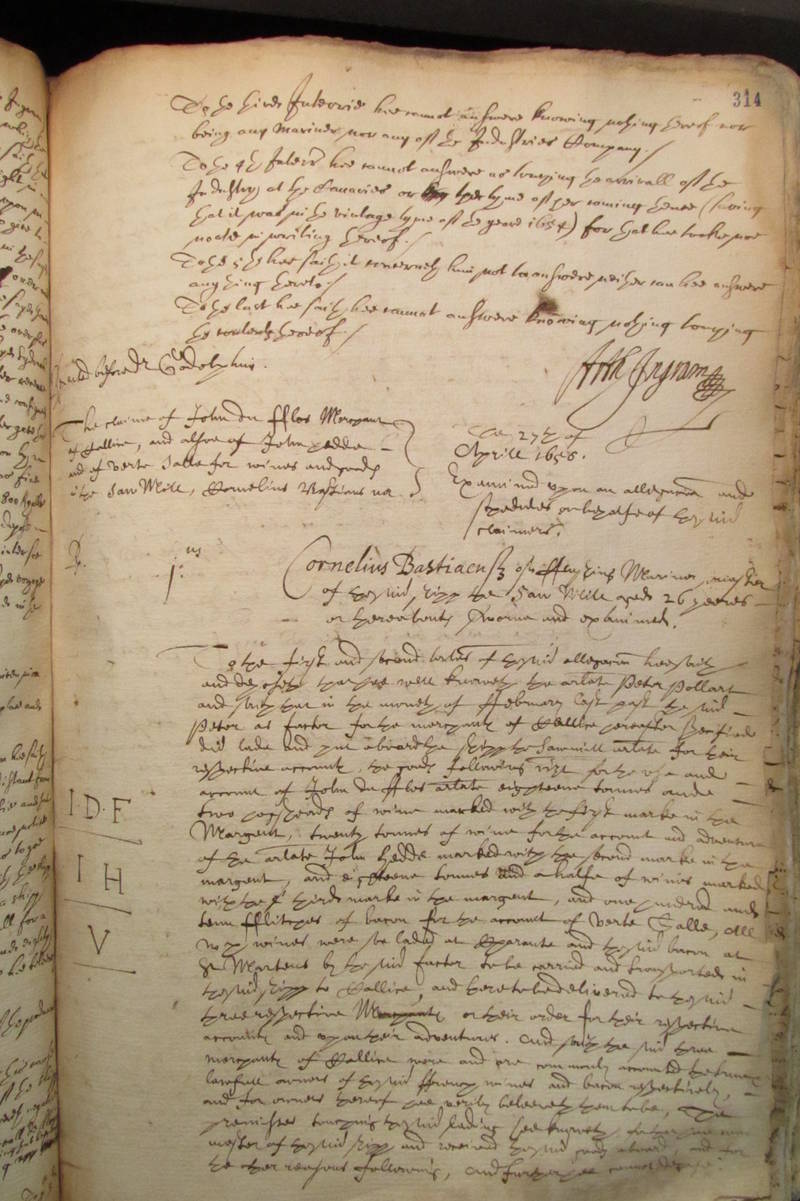 314
To the third Interrie hee cannot answere knowing nothing thereof nor
being any Mariner nor any of the Industries Company./
To the 4th Interr hee cannot answere as touching the arrivall of the
Industry at the Canaries or her tyme of her coming thence (saving
that it was in the vintage tyme of the yeare 1654) for that hee tooke noe
note in writing thereof./
To the 5th hee saith it concerneth him not to answere neither can hee answere
any thing thereto./
To the last hee saith hee cannot answere knowing nothing touching
the contents thereof./
before dr Godolphin.
Arth Ingram
The claime of John du fflos Merchant
of Hallice, and alsoe of John hedde
and of Verte Salle for wines and goods
in the Saw Mill, Cornelius Bastians mr
The 27th of
Aprill 1656.
Examined upon an allegation and
schedules on behalfe of the said
claimers.
1us
Cornelius Bastiaensz of fflushing Mariner, master
of the said shipp the Saw Mill aged 26 yeeres
or thereabouts sworne and examined.
To the first and second articles of the said allegation hee saith
and deposeth that hee well knoweth the arlate Peter Pollart
and saith that in the moneth of ffebruary last past the said
Peter as factor for the merchants of Hallice hereafter specified
did lade and put aboard the shipp the Sawmill arlate for their
respective account, the goods following vizt for the use and
account of John du fflos arlate eighteene tonnes and
two hogsheads of wine marked with the first marke in the
Margent, twenty tonnes of wine for the account and adventure
of the arlate John hedde marked with the second marke in the
margent, and eighteene tonnes and a halfe of wines marked
with the third marke in the margent, and one hundred and
tenn fflitches of bacon for the account of Verte Salle, All
wch wines were soe laden at Charante and the said bacon at
St Martens by the said factor to be carried and transported in
the said shipp to Hallice, and there to be delivered to the said
three respective Merchants or their order for their respective
accounts and upon their adventures. And saith the said three
merchants of Hallice were and are commonly accounted the true
lawfull owners of the said ffrench wines and bacon respectively,
and for owners thereof hee verily beleeveth them to be, The
premisses touching the said lading hee knoweth being
master of the said shipp and received the said goods aboard, and for
the other reasons following, And further hee cannot depose.
I D F
I H
V